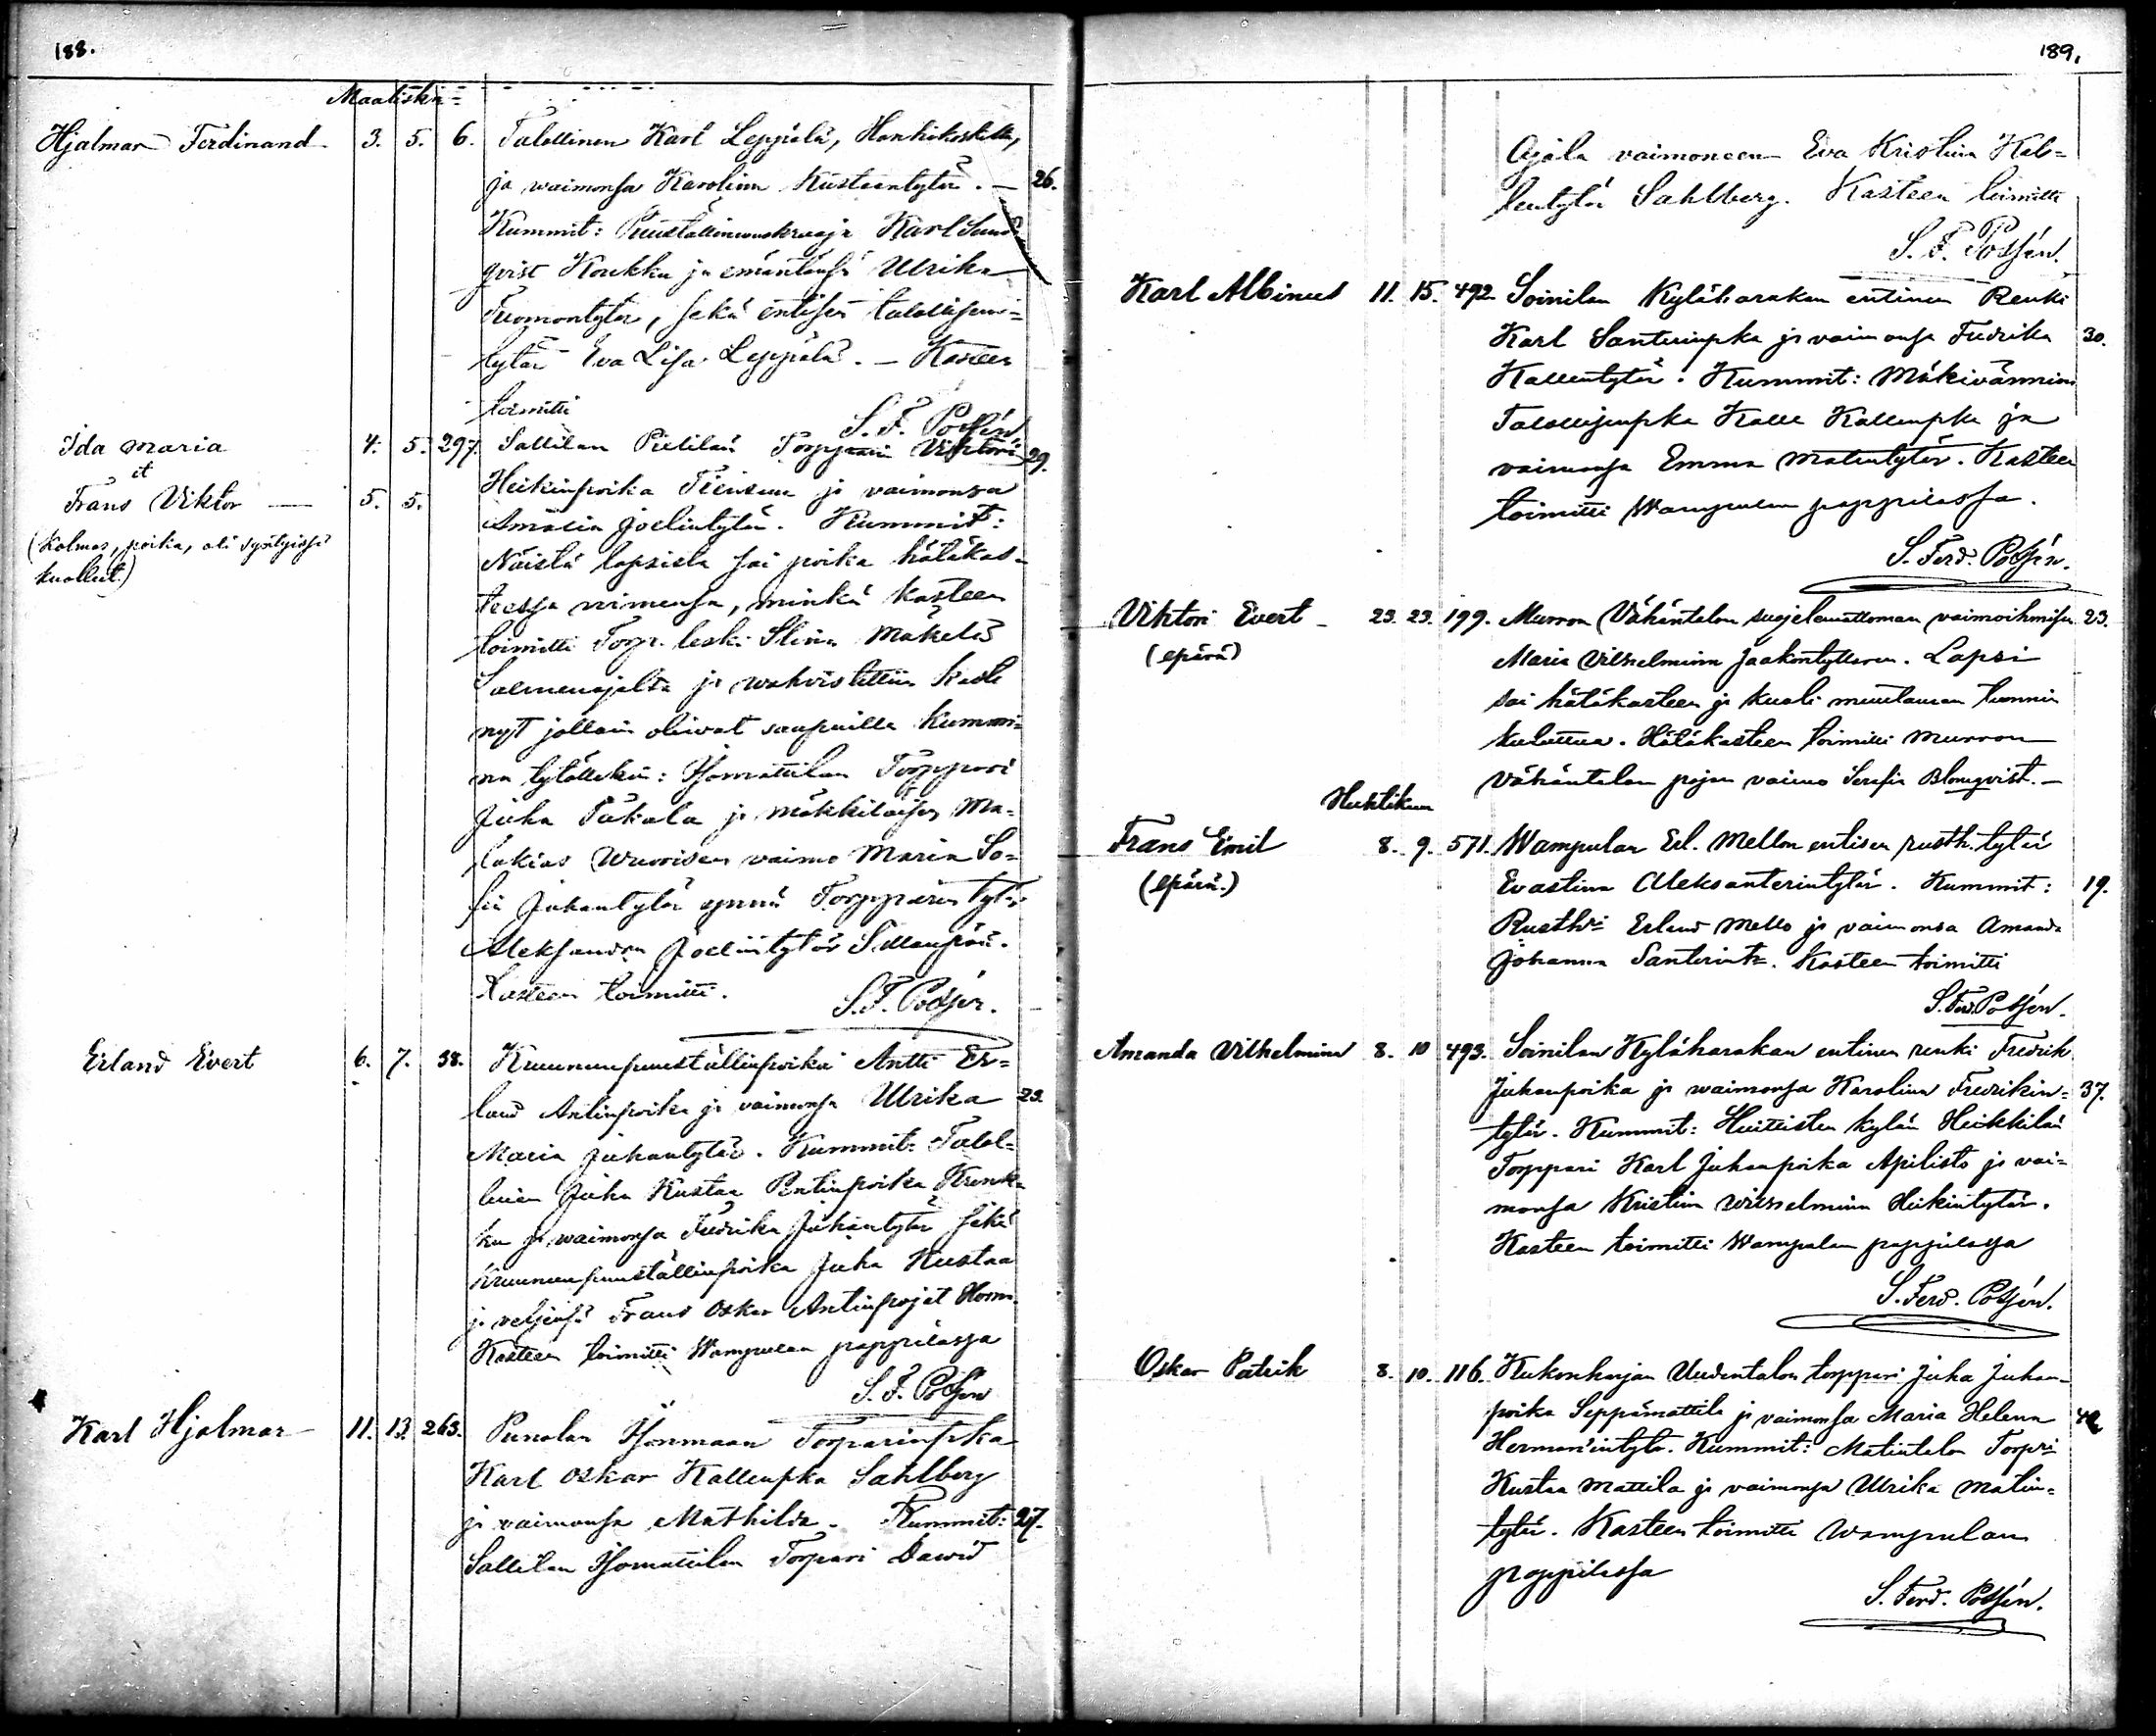 188.
Maalisku=
Hjalmar Ferdinand 3. 5. 6. Talollinen Karl Leppälä, Hanhikoskelta,
ja waimonsa Karolina Kustaantytär. — 26.
Kummit: Puustellinwuokraaja Karl Sund=
qvist Koukku ja emäntänsä Ulrika
Tuomontytär, sekä entisen talollisen=
tytär Eva Lisa Leppälä. — Kasteen
toimitti S. F. Possén
Ida Maria 4. 5. 297. Sallilan Pietilän Torppari Viktori 29.
et
Heikinpoika ja vaimonsa
Frans Viktor — 5. 5.
Amalia Joelintytär. Kummit:
(Kolmas, poika, oli syntyissä
Näistä lapsista sai poika hätäkas=
kuollut.)
teessa nimensä, minkä kasteen
toimitti Torp. leski Stina Mäkelä
ja wahvistettiin kaste
nyt jolloin oliwat saapuilla kummi=
na tytöllekin: Isomattilan Torppari
Juha ja mäkkiläisen Ma=
lakias vaimo Maria So=
fia Juhantytär ynnä Torpparin tytär
Aleksandra Joelintytär Sillanpää.
Kasteen toimitti. S. F. Possén.
Erland Evert 6. 7. 38. Kruununpuustellinpoika Antti Er=
land Antinpoika ja vaimonsa Ulrika 23.
Maria Juhantytär. Kummit: Talol=
linen Juha Kustaa Penttinpoika Krenk=
ku ja waimonsa Fredrika Juhantytär sekä
Kruununpuustellinpoika Juha Kustaa
ja veljensä Frans Oskar Antinpojat
Kasteen toimitti Wampulan pappilassa
S. F. Possén
Karl Hjalmar 11. 13. 263. Punolan Isonmaan Torparinpka
Karl Oskar Kallenpka Sahlberg
ja vaimonsa Mathilda. Kummit: 27.
Sallilan Isomattilan Torpari Dawid
189.
Ajala vaimoneen Eva Kristiina Kal=
lentytär Sahlberg. Kasteen toimitti
S. F. Possén.
Karl Albinus 11. 15. 492. Soinilan Kyläharakan entinen Renki
Karl Santerinpka ja vaimonsa Fredrika 30.
Kallentytär. Kummit: Mäkivännin
Talollisenpka Kalle Kallenpka ja
vaimonsa Emma Matintytär. Kasteen
toimitti Wampulan pappilassa.
S. Ferd. Possén.
Viktori Evert 23. 23. 199. Murron Vähäntalon suojelemattoman vaimoihmisen 23.
(epärä)
Maria Vilhelmiina Jaakontyttären. Lapsi
sai hätäkasteen ja kuoli muutaman tunnin
kuluttua. Hätäkasteen toimitti Murron
Vähäntalon pojan vaimo Serafia Blomqvist. —
Huhtikuu
Frans Emil 8. 9. 571. Wampulan Erl. Mellon entisen rusth. tytär
(Epärä.)
Evastina Aleksanterintytär. Kummit: 19.
Rusthri Erland Mello ja vaimonsa Amanda
Johanna Santerintr. Kasteen toimitti
S. Ferd. Possén.
Amanda Vilhelmina 8. 10 493. Soinilan Kyläharakan entinen renki Fredrik
Juhanpoika ja waimonsa Karolina Fredrikin= 37.
tytär. Kummit: Huittisten kylän Heikkilän
Torppari Karl Juhanpoika Apilisto ja vai=
monsa Kristiina Wilhelmiina Heikintytär.
Kasteen toimitti Wampulan pappilassa
S. Ferd. Possén.
Oskar Patrik 8. 10. 116. Kukonharjan Uudentalon torppari Juha Juhan=
poika Seppämattila ja vaimonsa Maria Helena
Hermaninntytr. Kummit: Matintalon Torpri
Kustaa Mattila ja vaimonsa Ulrika Matin=
tytär. Kasteen toimitti Wampulan
pappilassa
S. Ferd. Possén.